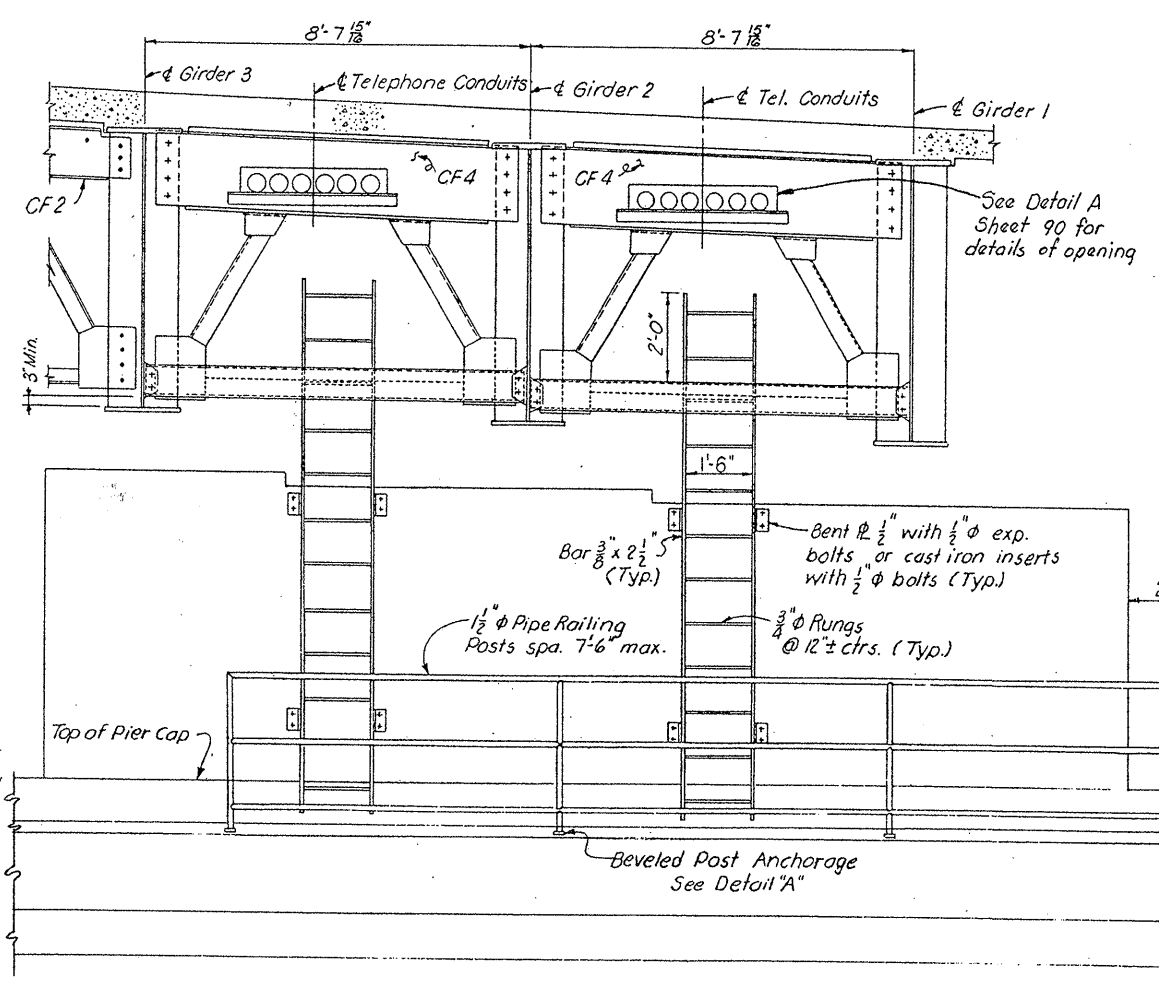 8'-7 15/16"
8'-7 15/16"
℄ Girder 3
℄ Telephone Conduits
℄ Girder 2
℄ Tel. Conduits
℄ Girder 1
CF 2
CF 4
CF 4
See Detail A
Sheet 90 for
details of opening
3" Min.
2'-0"
1'-6"
Bar 3/8" x 2 1/2"
(Typ.)
Bent ⅊ 1/2" with 1/2" ϕ exp.
bolts or cast iron inserts
with 1/2" ϕ bolts (Typ.)
1 1/2" ϕ Pipe Railing
Posts spa. 7'-6" max.
3/4" ϕ Rungs
@ 12"± ctrs. (Typ.)
Top of Pier Cap
Beveled Post Anchorage
See Detail "A"